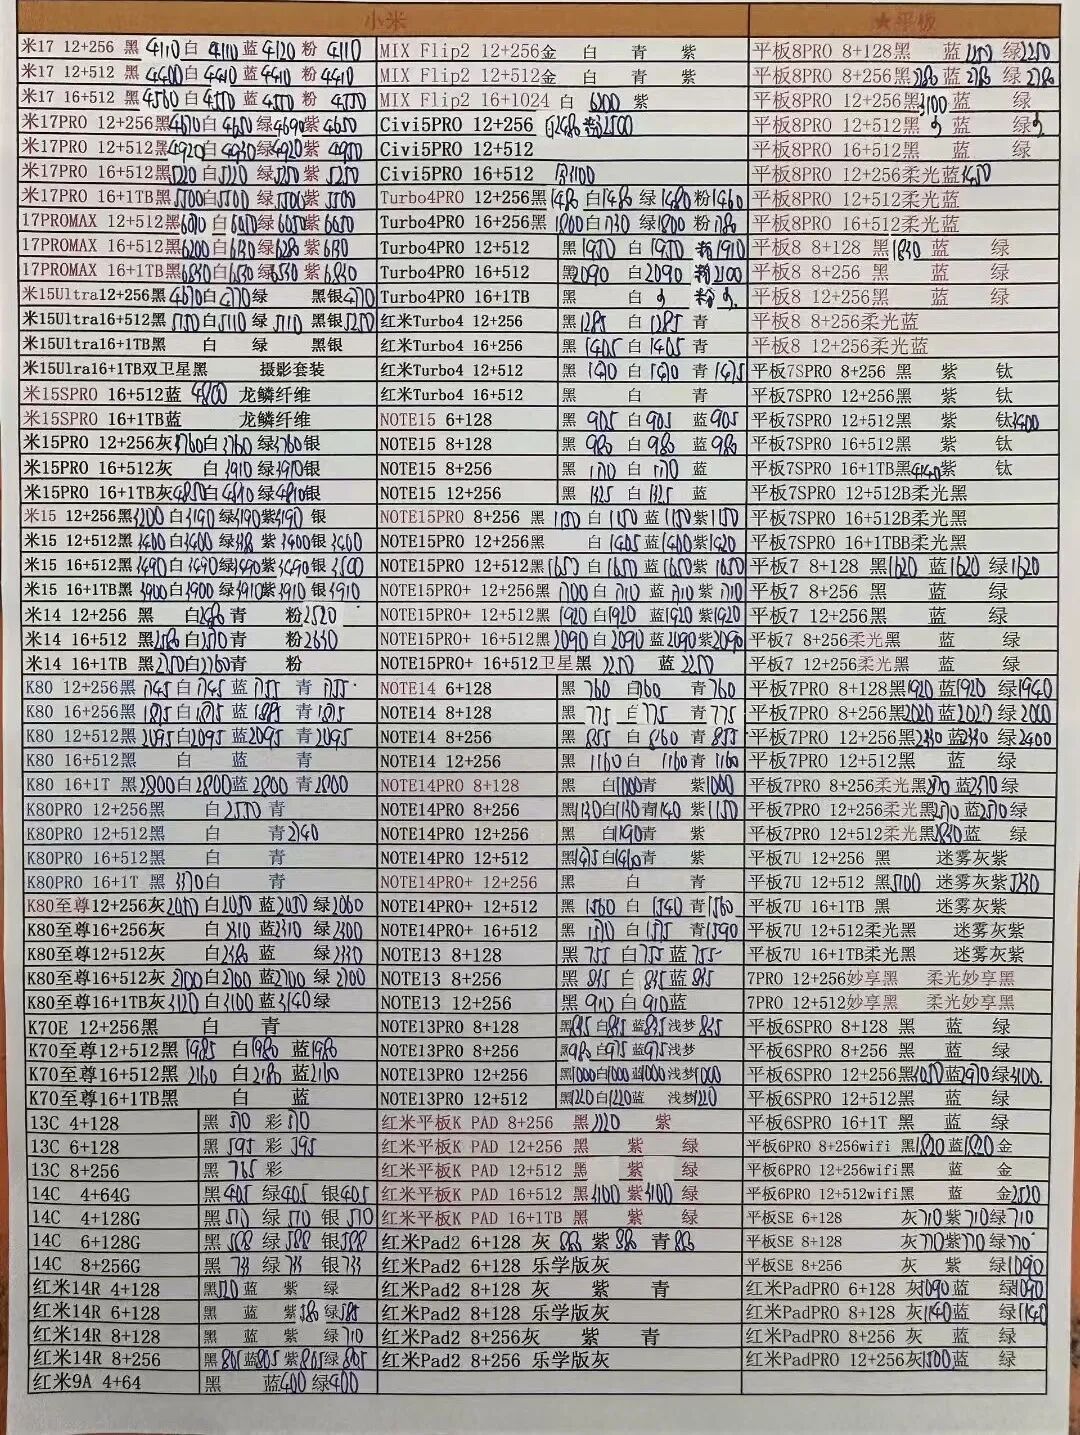 小米
米17 12+256 黑 4110 白 4110 蓝 4120 粉 4110
米17 12+512 黑 4400 白 4410 蓝 4410 粉 4410
米17 16+512 黑 4560 白 4550 蓝 4550 粉 4550
米17PRO 12+256黑4670白 4650 绿4690紫 4650
米17PRO 12+512黑4920白4930绿4920紫 4950
米17PRO 16+512黑5220白 5220 绿5250紫 5250
米17PRO 16+1TB黑5500白5500 绿5500紫 5500
17PROMAX 12+512黑6010 白6050绿6050紫6050
17PROMAX 16+512黑6200 白6130绿6280 紫6130
17PROMAX 16+1TB黑6830白6530绿6530紫6830
米15Ultra12+256黑4670白4770绿 黑银4770
米15Ultra16+512黑5150白5110 绿 5110 黑银5250
米15Ultra16+1TB黑 白 绿 黑银
米15Ulra16+1TB双卫星黑 摄影套装
米15SPRO 16+512蓝 4800 龙鳞纤维
米15SPRO 16+1TB蓝 龙鳞纤维
米15PRO 12+256灰3760白3760 绿3760银
米15PRO 16+512灰 白3910绿3910银
米15PRO 16+1TB灰4850白4810绿4810银
米15 12+256黑3200 白3190绿3190紫3190 银
米15 12+512黑3400白3400 绿 紫3400银3400
米15 16+512黑3490白3490绿3490紫3490银3500
米15 16+1TB黑3900白3900 绿3910紫3910 银3910
米14 12+256 黑 白2480青 粉2520
米14 16+512 黑2580白2570青 粉2630
米14 16+1TB 黑2750白2760青 粉
K80 12+256黑 1745白1745蓝 1755 青 1755
K80 16+256黑 1875白1875蓝 1885 青1875
K80 12+512黑2095白2095蓝2095 青2095
K80 16+512黑 白 蓝 青
K80 16+1T 黑2800白2800蓝 2800 青2800
K80PRO 12+256黑 白2550 青
K80PRO 12+512黑 白 青2740
K80PRO 16+512黑 白 青
K80PRO 16+1T 黑 3370白 青
K80至尊12+256灰2050 白2050 蓝2050 绿2060
K80至尊16+256灰 白2310 蓝2310 绿2300
K80至尊12+512灰 白2380 蓝 绿2330
K80至尊16+512灰 2700白2700 蓝2700 绿 2700
K80至尊16+1TB灰3120 白3100 蓝3140绿
K70E 12+256黑 白 青
K70至尊12+512黑1985 白1980 蓝1980
K70至尊16+512黑 2160 白2180 蓝2160
K70至尊16+1TB黑 白 蓝
13C 4+128 黑 510 彩 510
13C 6+128 黑 595 彩 595
13C 8+256 黑 765 彩
14C 4+64G 黑405 绿405 银405
14C 4+128G 黑510 绿 510 银 510
14C 6+128G 黑 588 绿588 银588
14C 8+256G 黑 733 绿733 银733
红米14R 4+128 黑520 蓝 紫 绿
红米14R 6+128 黑 蓝 紫580 绿585
红米14R 8+128 黑 蓝 紫 绿710
红米14R 8+256 黑805蓝805紫805绿805
红米9A 4+64 黑 蓝400 绿400
MIX Flip2 12+256金 白 青 紫
MIX Flip2 12+512金 白 青 紫
MIX Flip2 16+1024 白 6200 紫
Civi5PRO 12+256 白2480 粉2500
Civi5PRO 12+512
Civi5PRO 16+512 3100
Turbo4PRO 12+256黑1480 白1480 绿 1480粉1460
Turbo4PRO 16+256黑1800白1730 绿1800 粉1780
Turbo4PRO 12+512 黑1950 白1950 粉1910
Turbo4PRO 16+512 黑2090 白2090 粉2100
Turbo4PRO 16+1TB 黑 白 粉
红米Turbo4 12+256 黑1285 白1285 青
红米Turbo4 16+256 黑1405 白1405 青
红米Turbo4 12+512 黑1470 白1470 青1475
红米Turbo4 16+512 黑 白 青
NOTE15 6+128 黑905 白905 蓝905
NOTE15 8+128 黑980 白980 蓝980
NOTE15 8+256 黑1170 白1170 蓝
NOTE15 12+256 黑1325 白1325 蓝
NOTE15PRO 8+256 黑 1150 白 1150 蓝1150紫1150
NOTE15PRO 12+256黑 白1405蓝1400紫1420
NOTE15PRO 12+512黑1650 白1650 蓝1650紫 1650
NOTE15PRO+ 12+256黑1700 白1710 蓝1710紫1710
NOTE15PRO+ 12+512黑1920 白1920 蓝1920紫1920
NOTE15PRO+ 16+512黑2090 白2090 蓝2090紫2090
NOTE15PRO+ 16+512卫星黑 2250 蓝 2250
NOTE14 6+128 黑 760 白760 青760
NOTE14 8+128 黑 775 白775 青775
NOTE14 8+256 黑 855 白860 青855
NOTE14 12+256 黑1160 白 1160青1160
NOTE14PRO 8+128 黑 白1000青 紫1000
NOTE14PRO 8+256 黑1130白1130青1140 紫1150
NOTE14PRO 12+256 黑 白1190青 紫
NOTE14PRO 12+512 黑1475白1460青 紫
NOTE14PRO+ 12+256 黑 白 青
NOTE14PRO+ 12+512 黑 1560 白 1540 青1560
NOTE14PRO+ 16+512 黑 1570 白 1575 青1590
NOTE13 8+128 黑755 白755 蓝755
NOTE13 8+256 黑845 白845 蓝845
NOTE13 12+256 黑910 白910蓝
NOTE13PRO 8+128 黑845 白845 蓝835浅梦 825
NOTE13PRO 8+256 黑980白975蓝975浅梦
NOTE13PRO 12+256 黑1000白1000蓝1000浅梦1000
NOTE13PRO 12+512 黑1220白1220蓝 浅梦1220
红米平板K PAD 8+256 黑2220 紫
红米平板K PAD 12+256 黑 紫 绿
红米平板K PAD 12+512 黑 紫 绿
红米平板K PAD 16+512 黑3100紫3100 绿
红米平板K PAD 16+1TB 黑 紫 绿
红米Pad2 6+128 灰 880 紫 880 青 880
红米Pad2 6+128 乐学版灰
红米Pad2 8+128 灰 紫 青
红米Pad2 8+128 乐学版灰
红米Pad2 8+256灰 紫 青
红米Pad2 8+256 乐学版灰
★平板
平板8PRO 8+128黑 蓝 2250 绿2250
平板8PRO 8+256黑2780 蓝 2780 绿 2780
平板8PRO 12+256黑3100 蓝 绿
平板8PRO 12+512黑 蓝 绿
平板8PRO 16+512黑 蓝 绿
平板8PRO 12+256柔光蓝3450
平板8PRO 12+512柔光蓝
平板8PRO 16+512柔光蓝
平板8 8+128 黑1830 蓝 绿
平板8 8+256 黑 蓝 绿
平板8 12+256黑 蓝 绿
平板8 8+256柔光蓝
平板8 12+256柔光蓝
平板7SPRO 8+256 黑 紫 钛
平板7SPRO 12+256黑 紫 钛
平板7SPRO 12+512黑 紫 钛3400
平板7SPRO 16+512黑 紫 钛
平板7SPRO 16+1TB黑4140紫 钛
平板7SPRO 12+512B柔光黑
平板7SPRO 16+512B柔光黑
平板7SPRO 16+1TBB柔光黑
平板7 8+128 黑1620 蓝1620 绿1620
平板7 8+256 黑 蓝 绿
平板7 12+256黑 蓝 绿
平板7 8+256柔光黑 蓝 绿
平板7 12+256柔光黑 蓝 绿
平板7PRO 8+128黑1920 蓝1920 绿1940
平板7PRO 8+256黑2020 蓝2020 绿2000
平板7PRO 12+256黑2330 蓝2330 绿2400
平板7PRO 12+512黑 蓝 绿
平板7PRO 8+256柔光黑2370 蓝2370绿
平板7PRO 12+256柔光黑2570 蓝2570绿
平板7PRO 12+512柔光黑2830蓝 绿
平板7U 12+256 黑 迷雾灰紫
平板7U 12+512 黑5100 迷雾灰紫5230
平板7U 16+1TB 黑 迷雾灰紫
平板7U 12+512柔光黑 迷雾灰紫
平板7U 16+1TB柔光黑 迷雾灰紫
7PRO 12+256妙享黑 柔光妙享黑
7PRO 12+512妙享黑 柔光妙享黑
平板6SPRO 8+128 黑 蓝 绿
平板6SPRO 8+256 黑 蓝 绿
平板6SPRO 12+256黑 蓝2970绿3100
平板6SPRO 12+512黑 蓝 绿
平板6SPRO 16+1T 黑 蓝 绿
平板6PRO 8+256wifi 黑1820蓝1820金
平板6PRO 12+256wifi黑 蓝 金
平板6PRO 12+512wifi黑 蓝 金2520
平板SE 6+128 灰710紫710绿710
平板SE 8+128 灰770紫770绿770
平板SE 8+256 灰 紫 绿1090
红米PadPRO 6+128 灰1090蓝 绿1090
红米PadPRO 8+128 灰1140蓝 绿1140
红米PadPRO 8+256 灰 蓝 绿
红米PadPRO 12+256灰1500蓝 绿